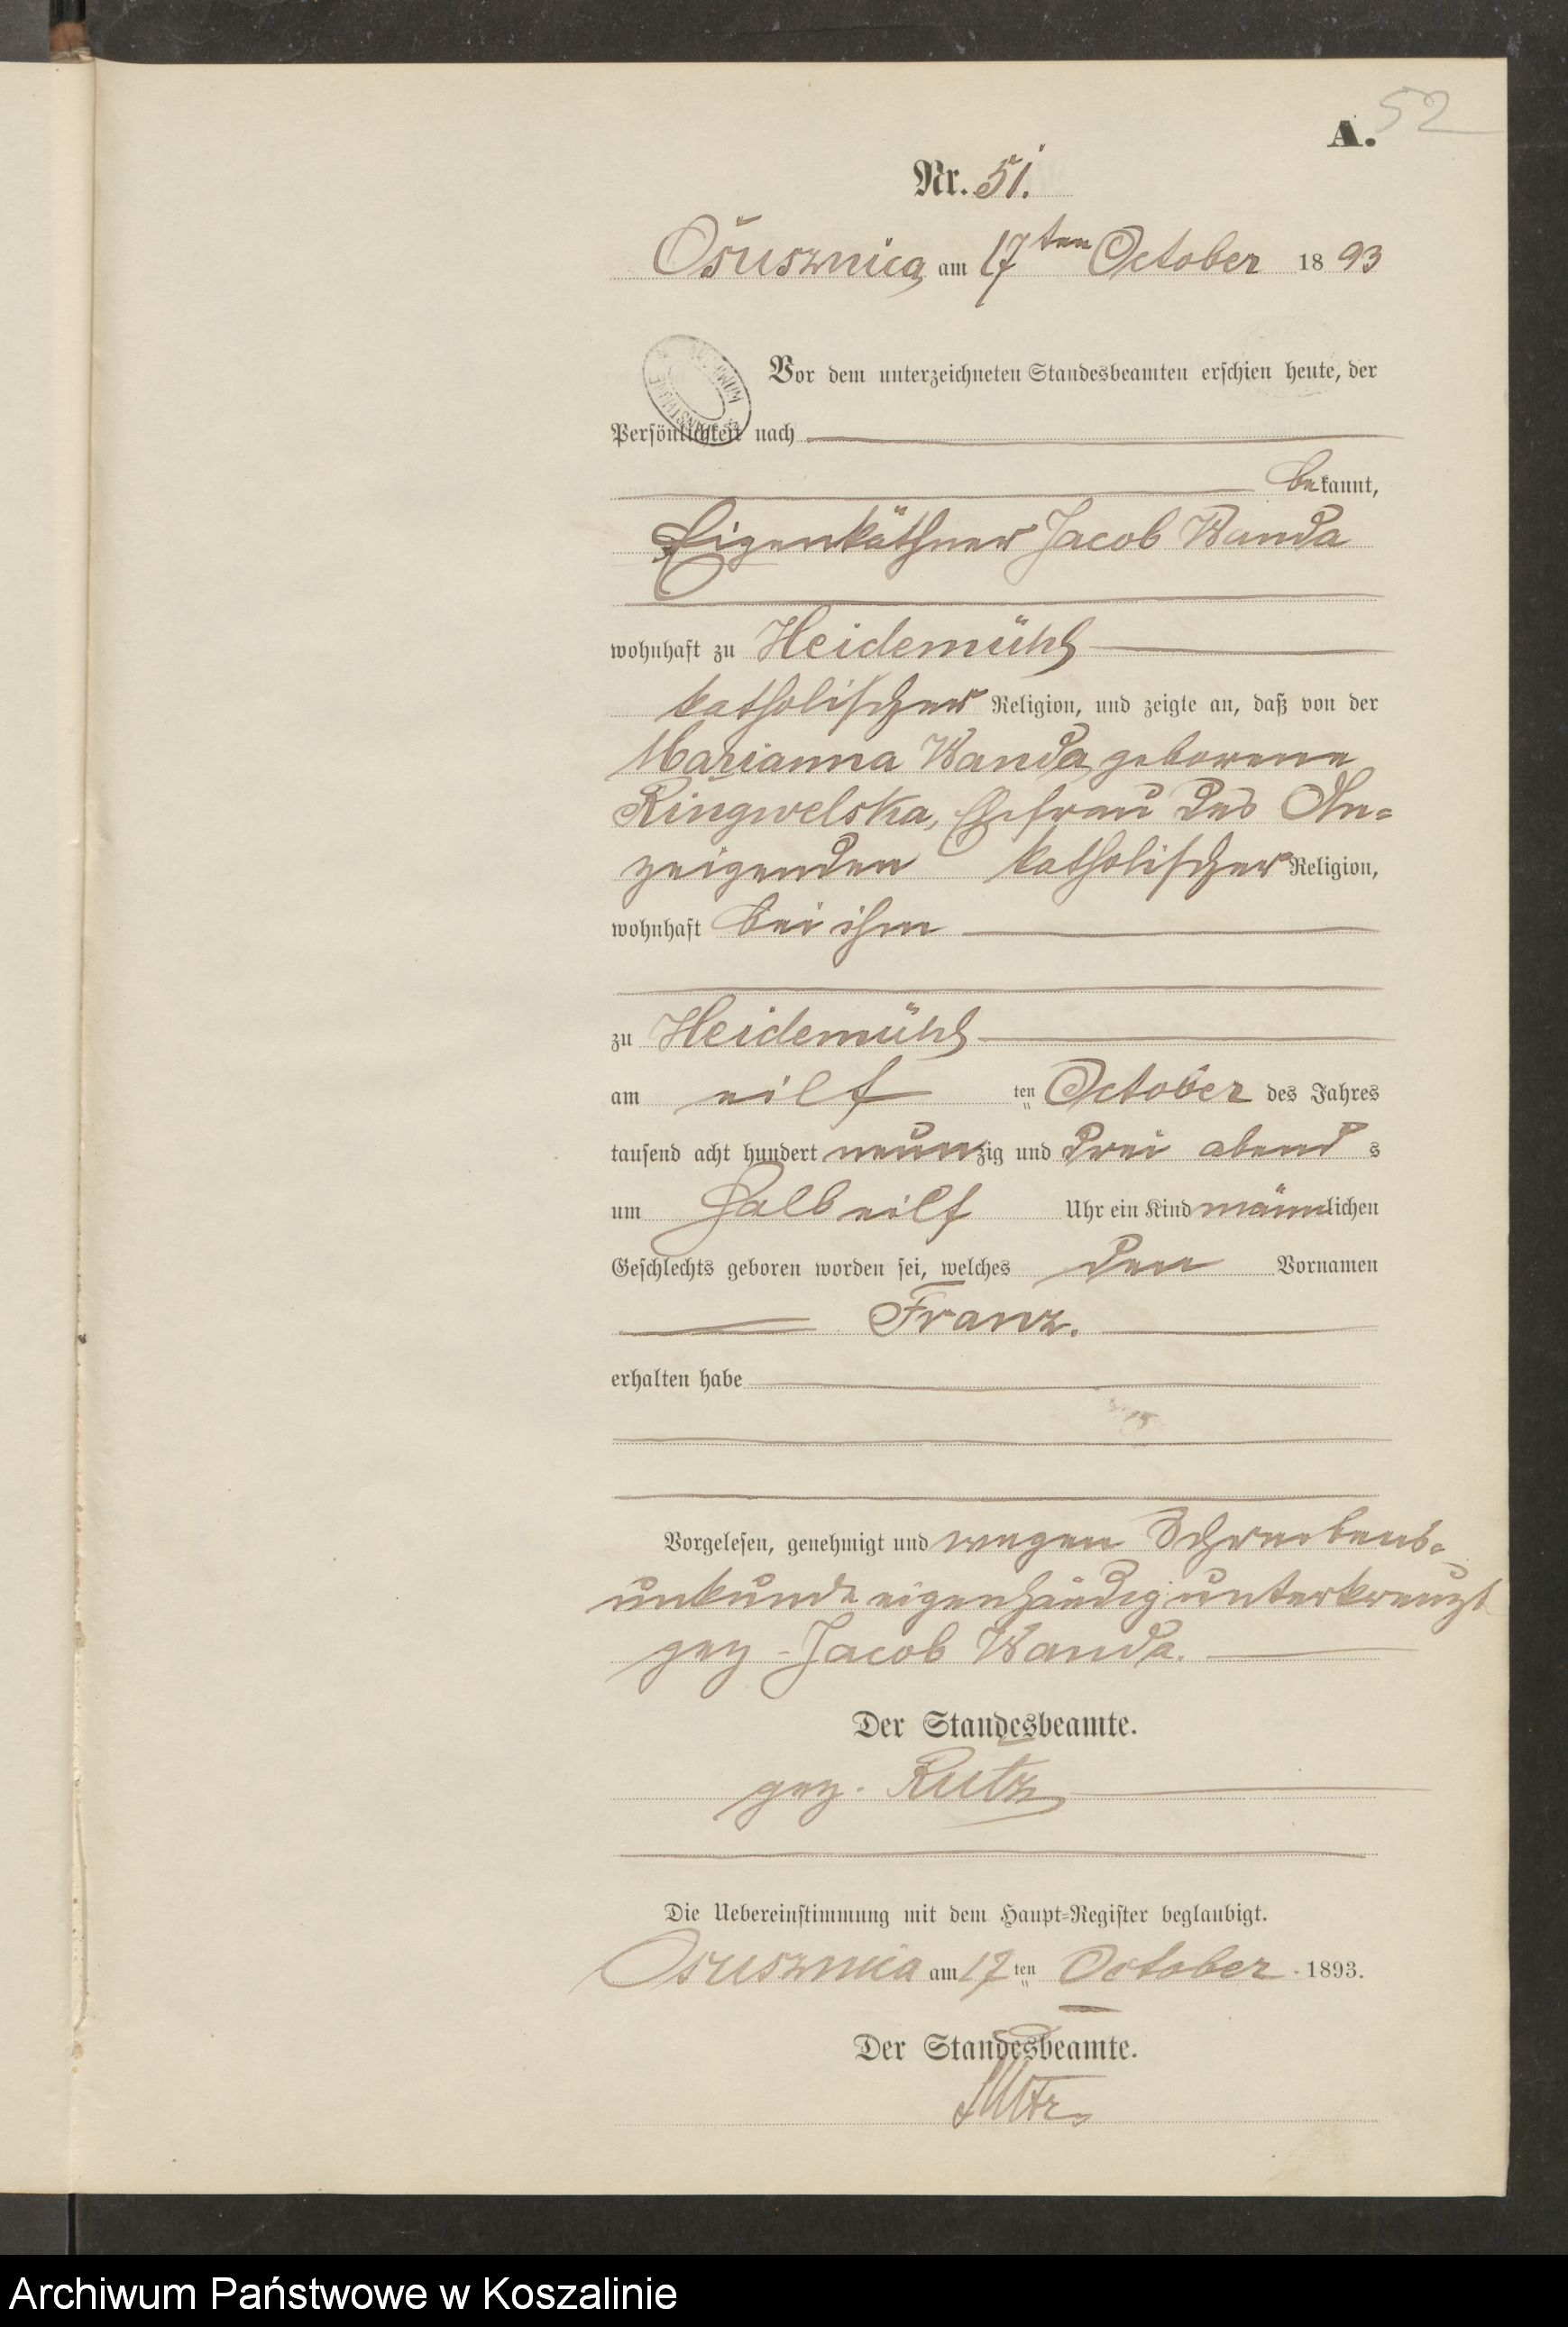 52
A.
Nr. 51.
Osusznica am 17ten October 1893
Vor dem unterzeichneten Standesbeamten erschien heute, der
Persönlichkeit nach
bekannt,
Eigenkäthner Jacob Wanda
wohnhaft zu Heidemühl
katholischer Religion, und zeigte an, daß von der
Marianna Wanda geborene
Ringwelska, Ehefrau des An=
zeigenden katholischer Religion,
wohnhaft bei ihm
zu Heidemühl
am eilf ten October des Jahres
tausend acht hundert neunzig und drei abends
um halb eilf Uhr ein Kind männlichen
Geschlechts geboren worden sei, welches den Vornamen
Franz.
erhalten habe
Vorgelesen, genehmigt und wegen Schreibens=
unkunde eigenhändig unterkreuzt
gez - Jacob Wanda.
Der Standesbeamte.
gez. Rutz
Die Uebereinstimmung mit dem Haupt=Register beglaubigt.
Osusznica am 17 ten October 1893.
Der Standesbeamte.
Rutz
Archiwum Państwowe w Koszalinie